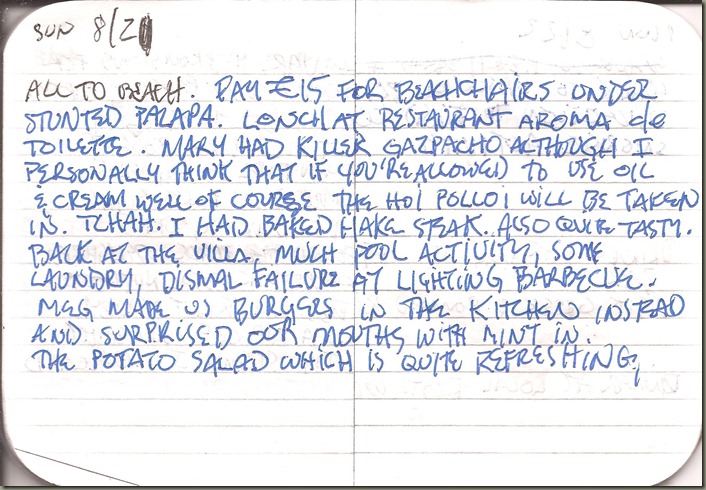 SUN 8/21
ALL TO BEACH. PAY €15 FOR BEACHCHAIRS UNDER
STUNTED PALAPA. LUNCH AT RESTAURANT AROMA de
TOILETTE. MARY HAD KILLER GAZPACHO ALTHOUGH I
PERSONALLY THINK THAT IF YOU'RE ALLOWED TO USE OIL
& CREAM WELL OF COURSE THE HOI POLLOI WILL BE TAKEN
IN. TCHAH. I HAD BAKED HAKE STEAK. ALSO QUITE TASTY.
BACK AT THE VILLA, MUCH POOL ACTIVITY, SOME
LAUNDRY, DISMAL FAILURE AT LIGHTING BARBECUE.
MEG MADE US BURGERS IN THE KITCHEN INSTEAD
AND SURPRISED OUR MOUTHS WITH MINT IN.
THE POTATO SALAD WHICH IS QUITE REFRESHING.